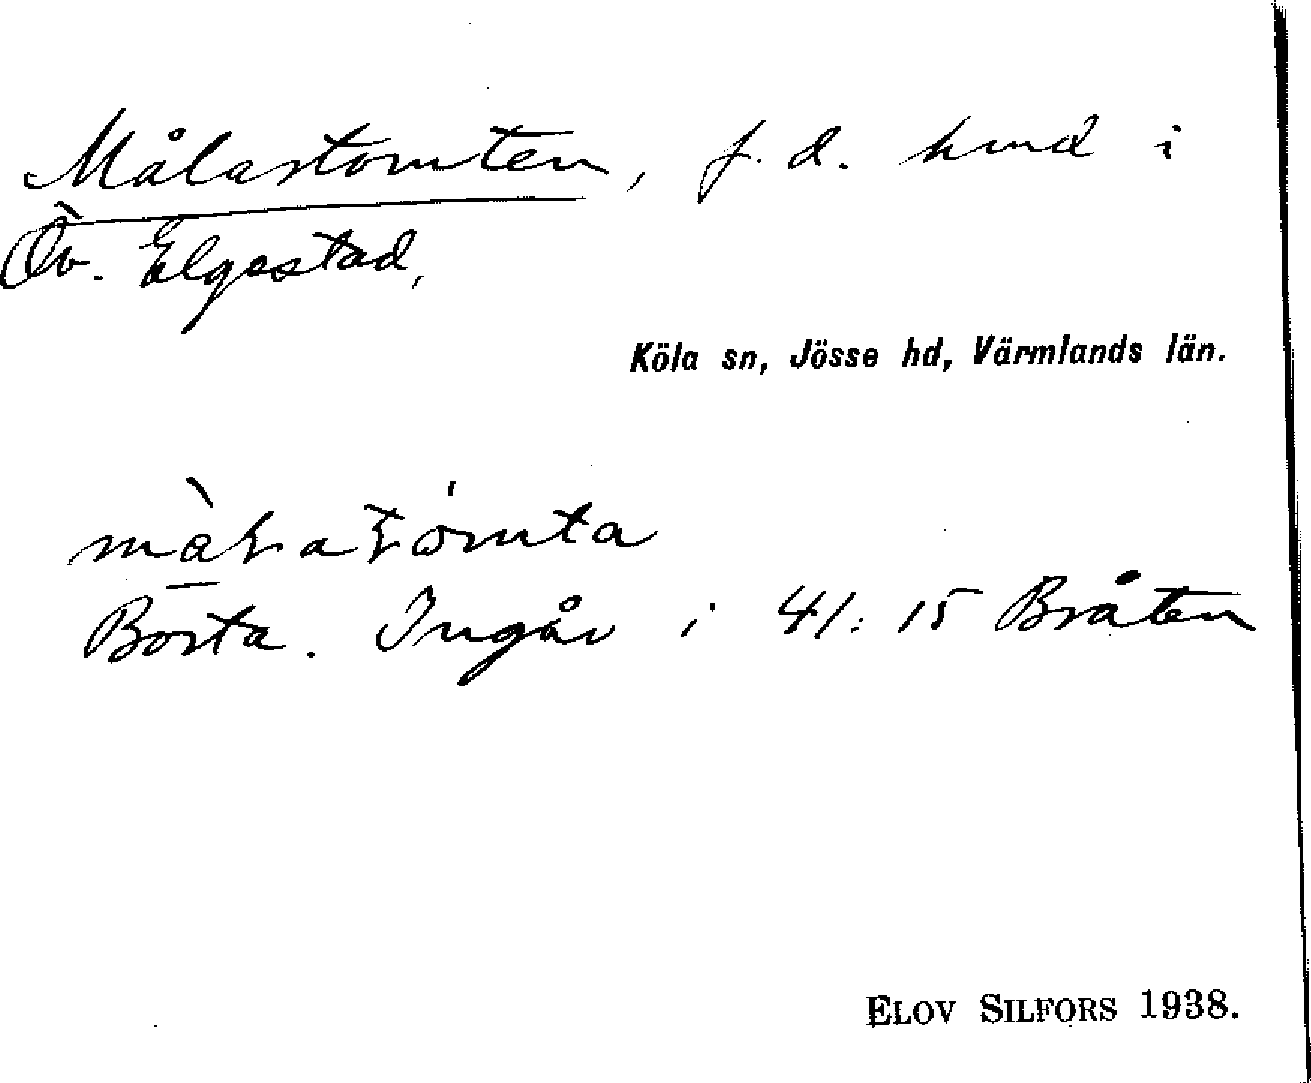 Målastomten, f. d. hmd i
Öv. Elgestad,
Köla sn, Jösse hd, Värmlands län.
Borta. Ingår i 41:15 Bråten
ELOV SILFORS 1938.